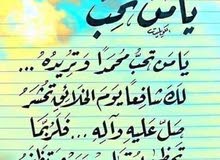 يا من تحب
يا من تحب محمدًا وتريده ...
لك شافعًا يوم الخلائق تحشر
صل عليه وآله ... فلربما